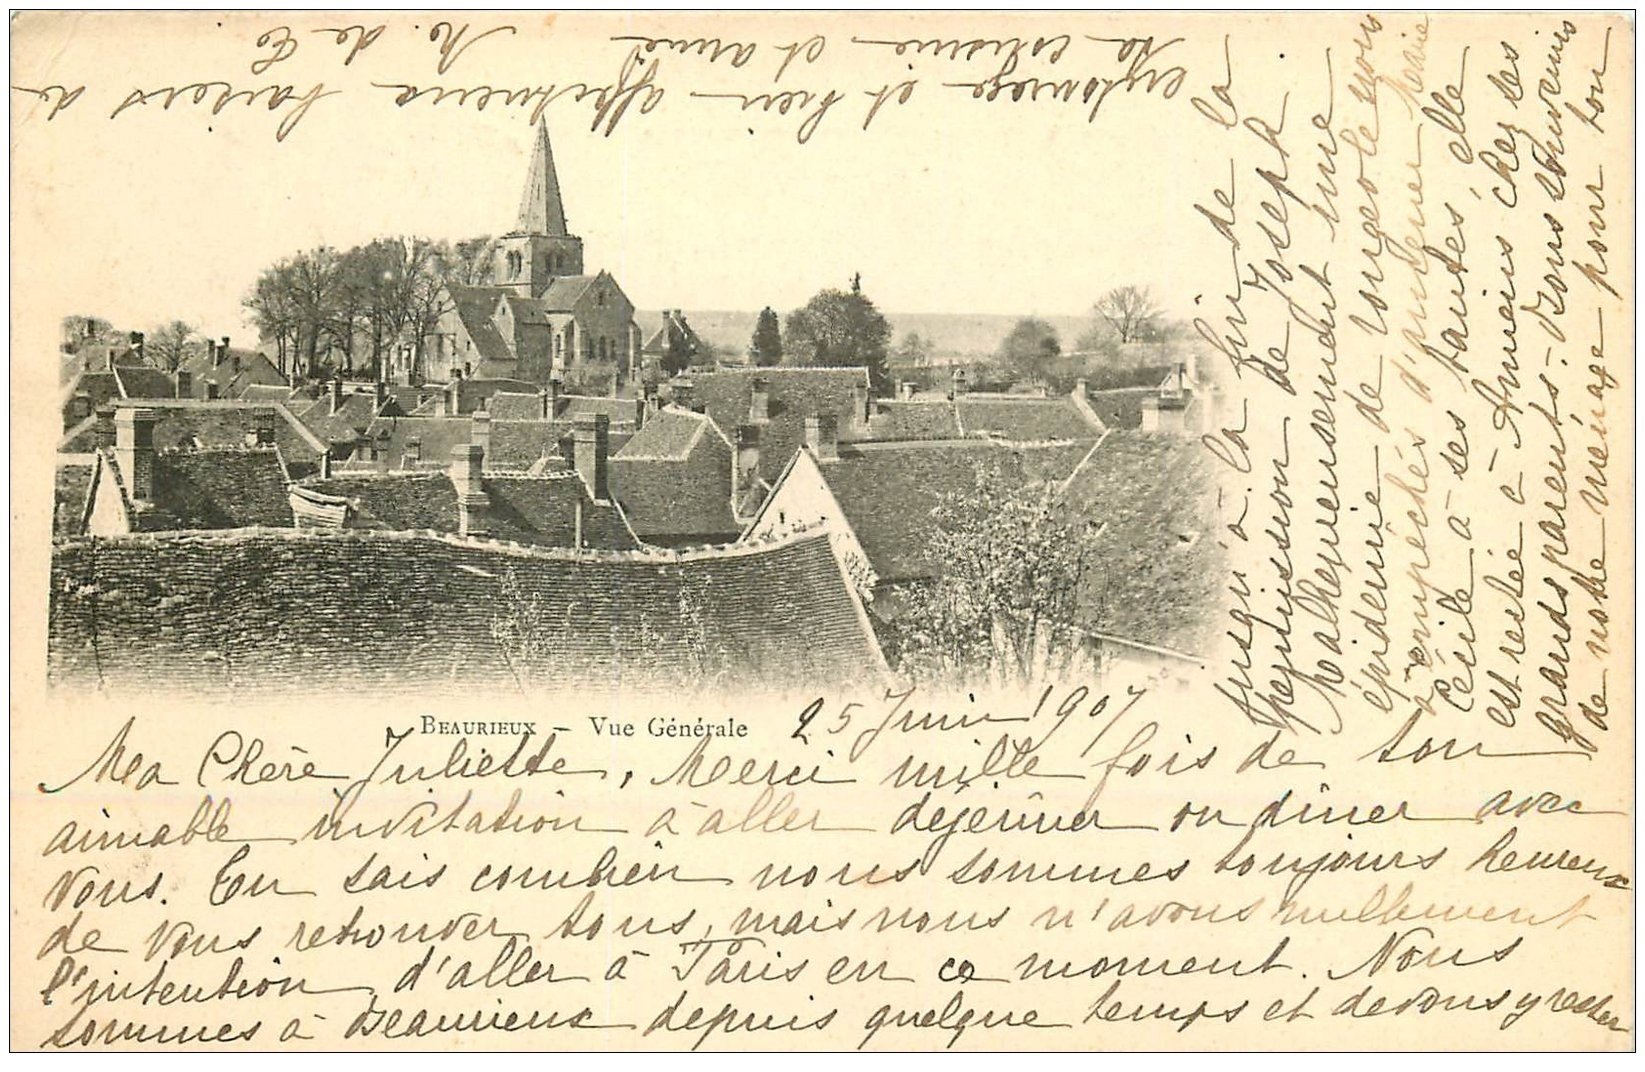 BEAURIEUX – Vue Générale
25 Juin 1907
Ma Chère Juliette, Merci mille fois de ton
aimable invitation à aller déjeûner ou dîner avec
vous. Tu sais combien nous sommes toujours heureux
de vous retrouver tous, mais nous n'avons nullement
l'intention d'aller à Paris en ce moment. Nous
sommes à Beaurieux depuis quelque temps et devons y rester
jusqu'à la fin de la
permission de Joseph.
Malheureusement une
épidémie de rougeole nous
a empêchés d'amener Marie
Cécile à ses tantes, elle
est restée à Amiens chez ses
grands parents. Bons souvenirs
de notre ménage pour ton
entourage et bien affectueux baisers de
ta cousine et amie
M. de